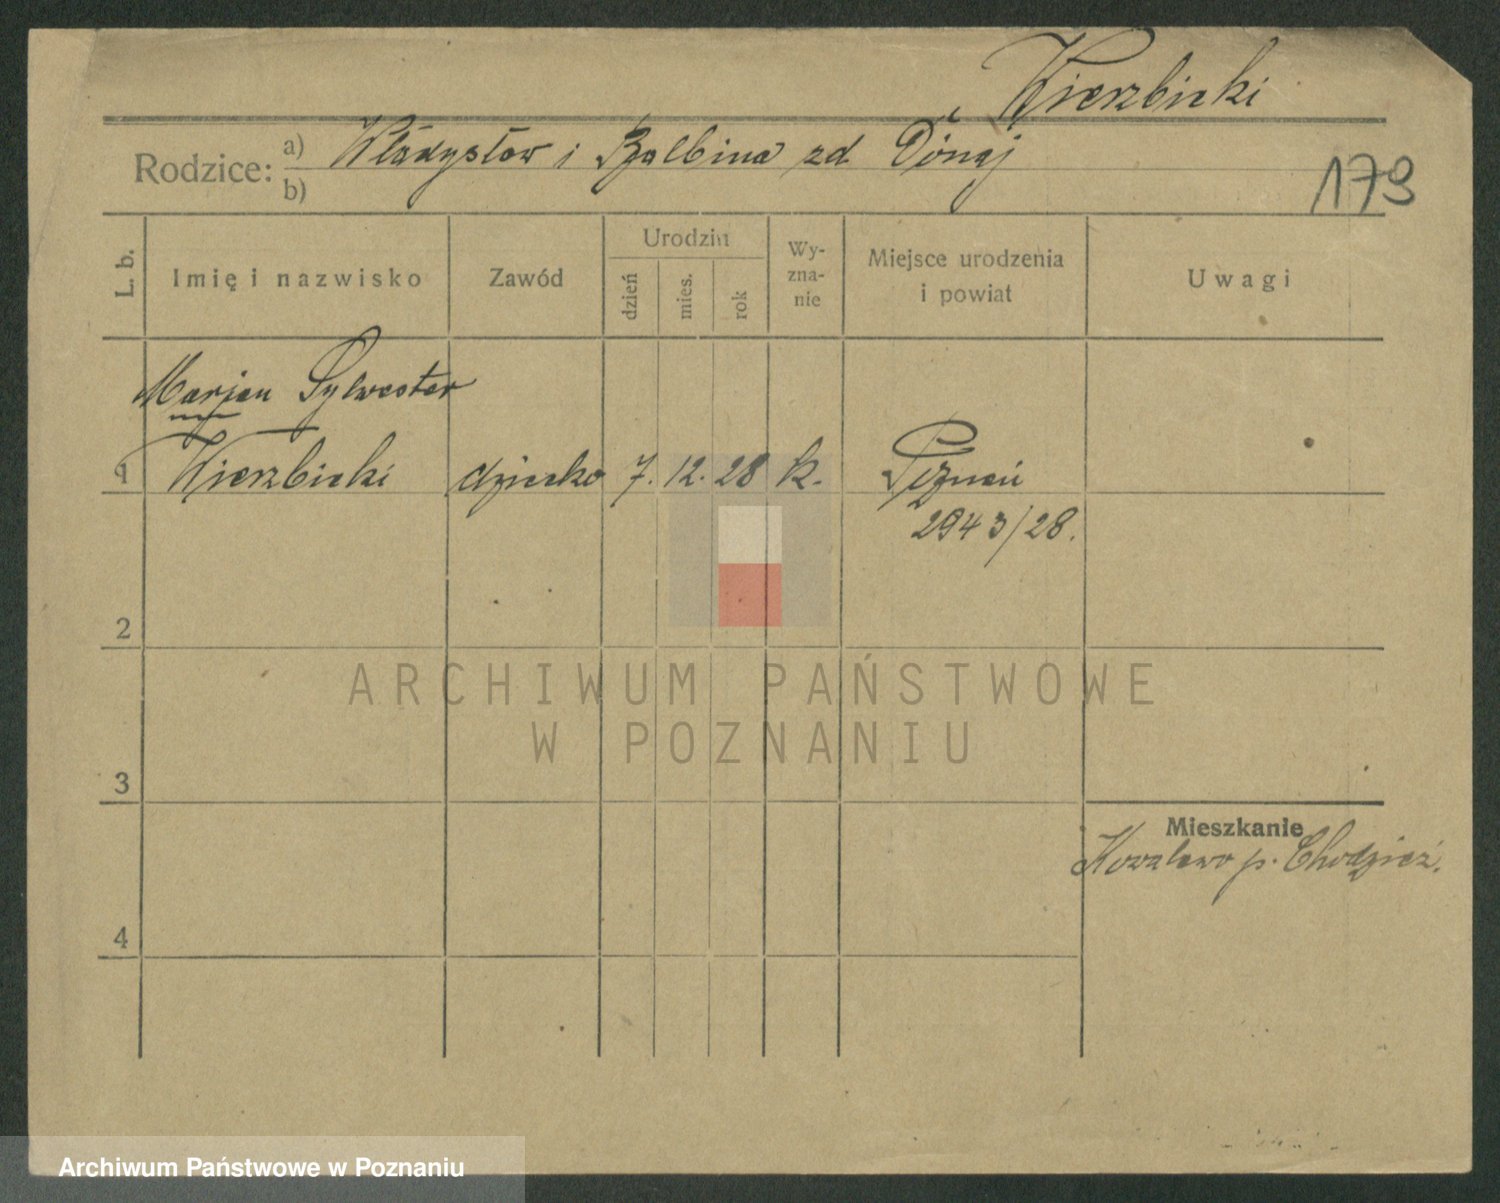 Wierzbicki
Rodzice: a) Władysław i Balbina zd
b)
179
L. b.
Imię i nazwisko
Zawód
Urodzin
dzień
mies.
rok
Wy-
zna-
nie
Miejsce urodzenia
i powiat
Uwagi
Marjan Sylwester
1 Wierzbicki dziecko 7. 12. 28 k. Poznań
2943/28.
2
ARCHIWUM PAŃSTWOWE
W POZNANIU
3
Mieszkanie
Kowalewo p. Chodzież.
4
Archiwum Państwowe w Poznaniu